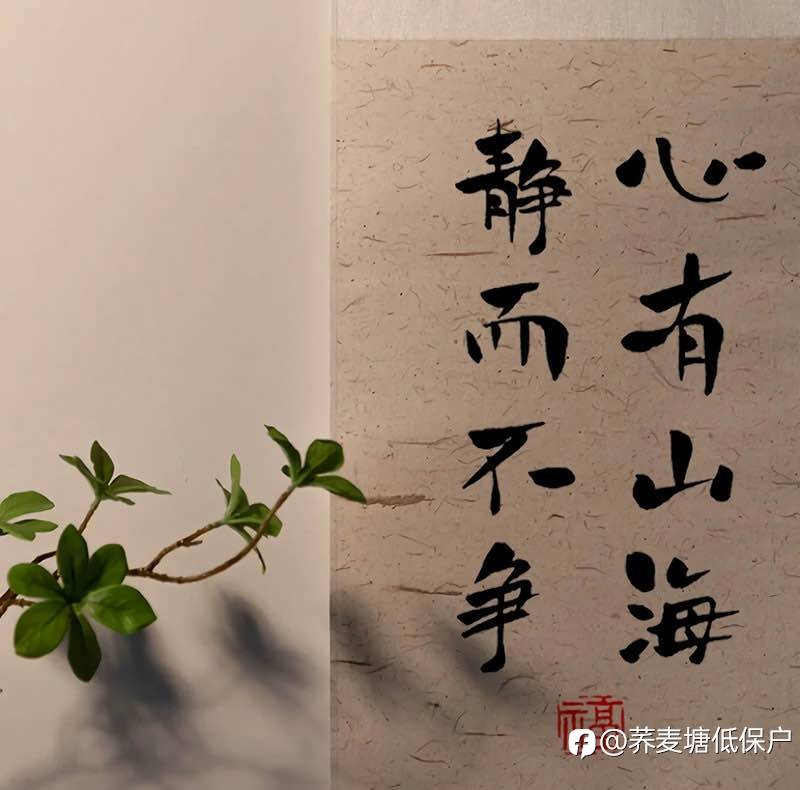 心有山海
静而不争
@荞麦塘低保户